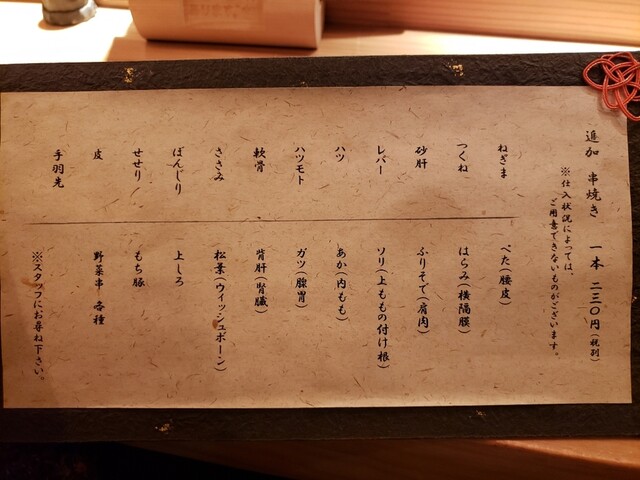 追加 串焼き 一本 二三〇円(税別)
※仕入状況によっては、
ご用意できないものがございます。
ねぎま
つくね
砂肝
レバー
ハツ
ハツモト
軟骨
ささみ
ぼんじり
せせり
皮
手羽先
ぺた(腰皮)
はらみ(横隔膜)
ふりそで(肩肉)
ソリ(上ももの付け根)
あか(内もも)
ガツ(腺胃)
背肝(腎臓)
松葉(ウイッシュボーン)
上しろ
もち豚
野菜串 各種
※スタッフにお尋ね下さい。